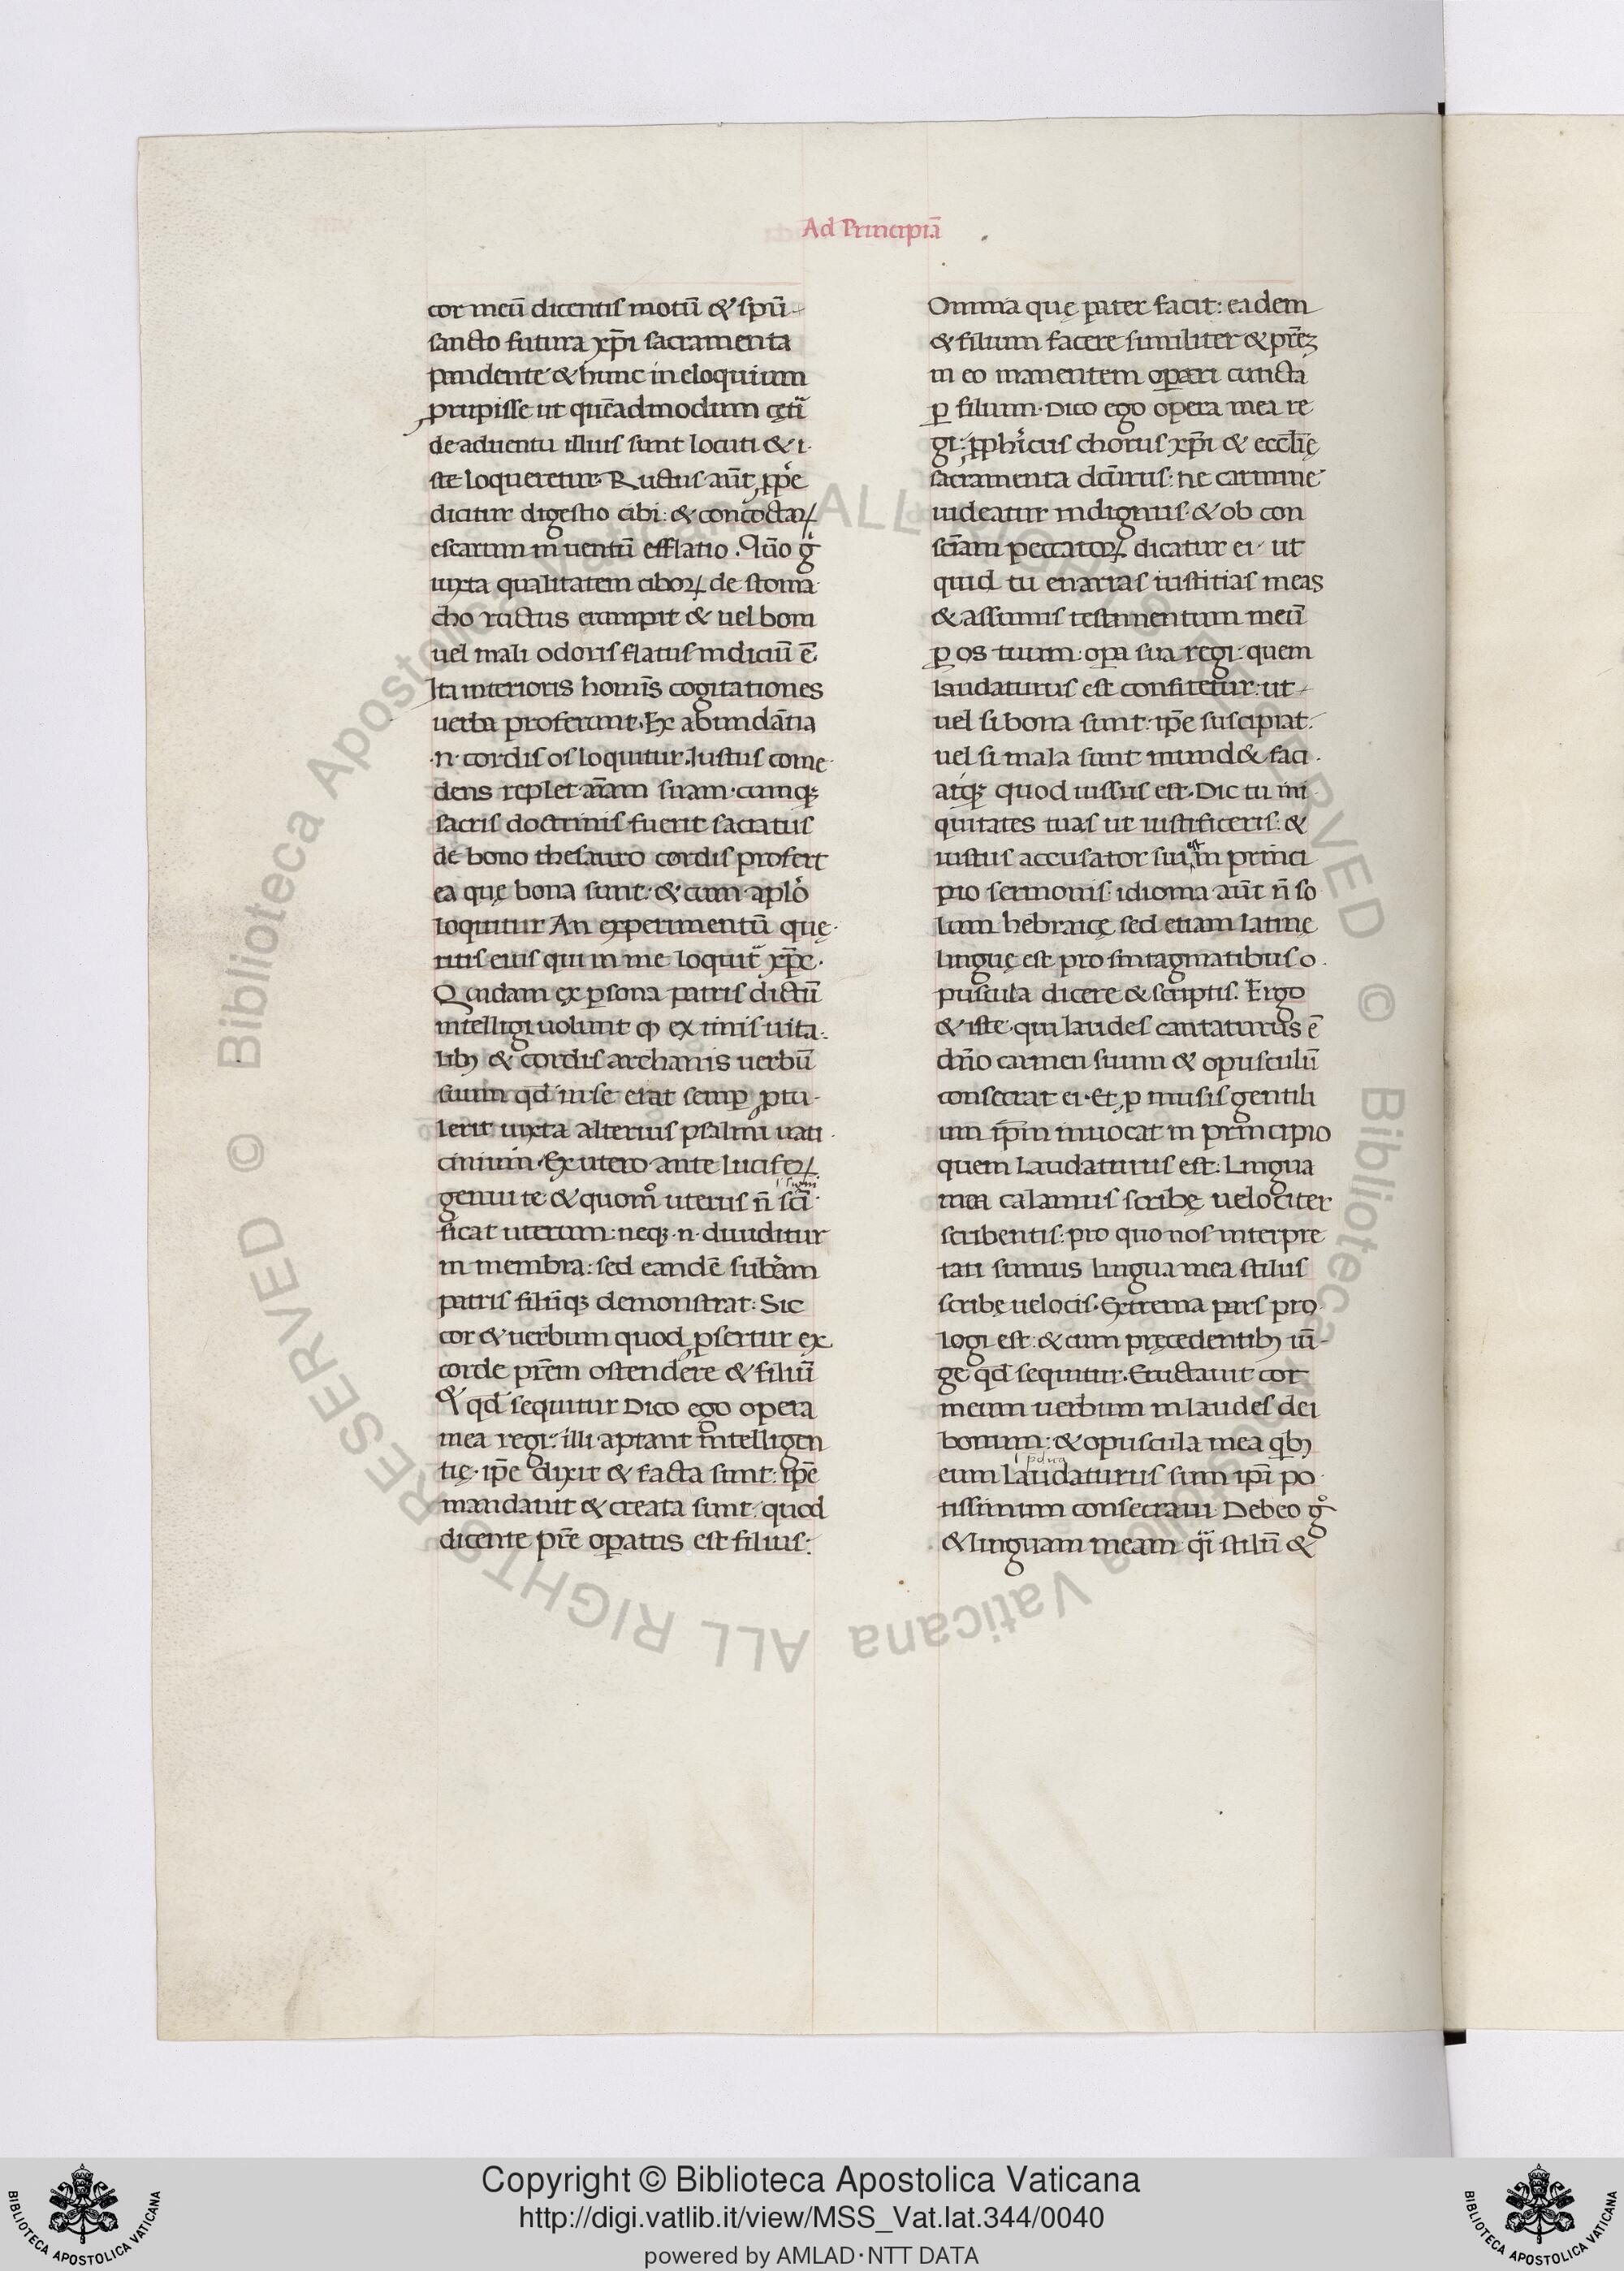 Ad Principiā
cor meū dicentis motū & spū
sancto futura xp̄i sacramenta
pandente & hunc in eloquium
prupisse ut quēadmodum cęti
de aduentu illius sunt locuti & i
ste loqueretur. Ructus aūt, ppe
dicitur digestio cibi: & concoctaꝝ
escarum in uentū efflatio. Quō g
iuxta qualitatem ciboꝝ de stoma
cho ructus erumpit & uel boni
uel mali odoris flatus indiciū ē.
Ita interioris homīs cogitationes
uerba proferunt. Ex abundātia
.n. cordis os loquitur. Iustus come
dens replet aīam suam. cumqꝫ
sacris doctrinis fuerit sacratus
de bono thesauro cordis profert
ea quę bona sunt. & cum aplo
loquitur An experimentū quę
ritis eius qui in me loquit xp̄c.
Quidam ex ꝑsona patris dictū
intelligi uolunt ꝙ ex imis uita
libꝫ & cordis archanis uerbū
suum qd in se erat semꝑ ꝓtu
lerit iuxta alterius psalmi uati
cinium. Ex utero ante luciferꝝ
genui te & quomº uterus n̄ sci
ficat uterum: neqꝫ .n. diuiditur
in membra: sed eandē subam
patris filiiqꝫ demonstrat: Sic
cor & uerbum quod ꝓfertur ex
corde prēm ostendere & filiū
& qd sequitur Dico ego opera
mea regi: illi aptant intelligen
tię. ip̄e dixit & facta sunt: ip̄e
mandauit & creata sunt: quod
dicente pr̄e oꝑatus est filius:
Omnia quę pater facit: eadem
& filium facere similiter & prēꝫ
in eo manentem oꝑari cuncta
ꝑ filium. Dico ego opera mea re
gi: ꝓphicus chorus xp̄i & eccl̄ię
sacramenta dc̄urus: ne carmine
uideatur indignus & ob con
sciam peccatoꝝ dicatur ei. ut
quid tu enarras iustitias meas
& assumis testamentum meū
ꝑ os tuum: oꝑa sua regi: quem
laudaturus est confitetur: ut
uel si bona sunt: ip̄e suscipiat:
uel si mala sunt mund& faci
atqꝫ quod iussus est. Dic tu ini
quitates tuas ut iustificeris: &
est
iustus accusator sui in princi
pio sermonis. idioma aūt n̄ so
lum hebraicę sed etiam latinę
linguę est pro sintagmatibus o
puscula dicere & scriptis. Ergo
& iste qui laudes cantaturus ē
dn̄o carmen suum & opusculū
consecrat ei. Et ꝓ musis gentili
um ip̄m inuocat in principio
quem laudaturus est: Lingua
mea calamus scribę uelociter
scribentis: pro quo nos interpre
tati sumus lingua mea stilus
scribę uelocis. Extrema pars pro
logi est: & cum pręcedentibꝫ iū
ge qd sequitur. Eructauit cor
meum uerbum in laudes dei
bonum: & opuscula mea qbꝫ
eum laudaturus sum ip̄i po
tissimum consecraui Debeo gº
& linguam meam qi stilū &
Copyright © Biblioteca Apostolica Vaticana
http://digi.vatlib.it/view/MSS_Vat.lat.344/0040
powered by AMLAD·NTT DATA
BIBLIOTECA APOSTOLICA VATICANA
BIBLIOTECA APOSTOLICA VATICANA
© Biblioteca Apostolica Vaticana ALL RIGHTS RESERVED
© Biblioteca Apostolica Vaticana ALL RIGHTS RESERVED